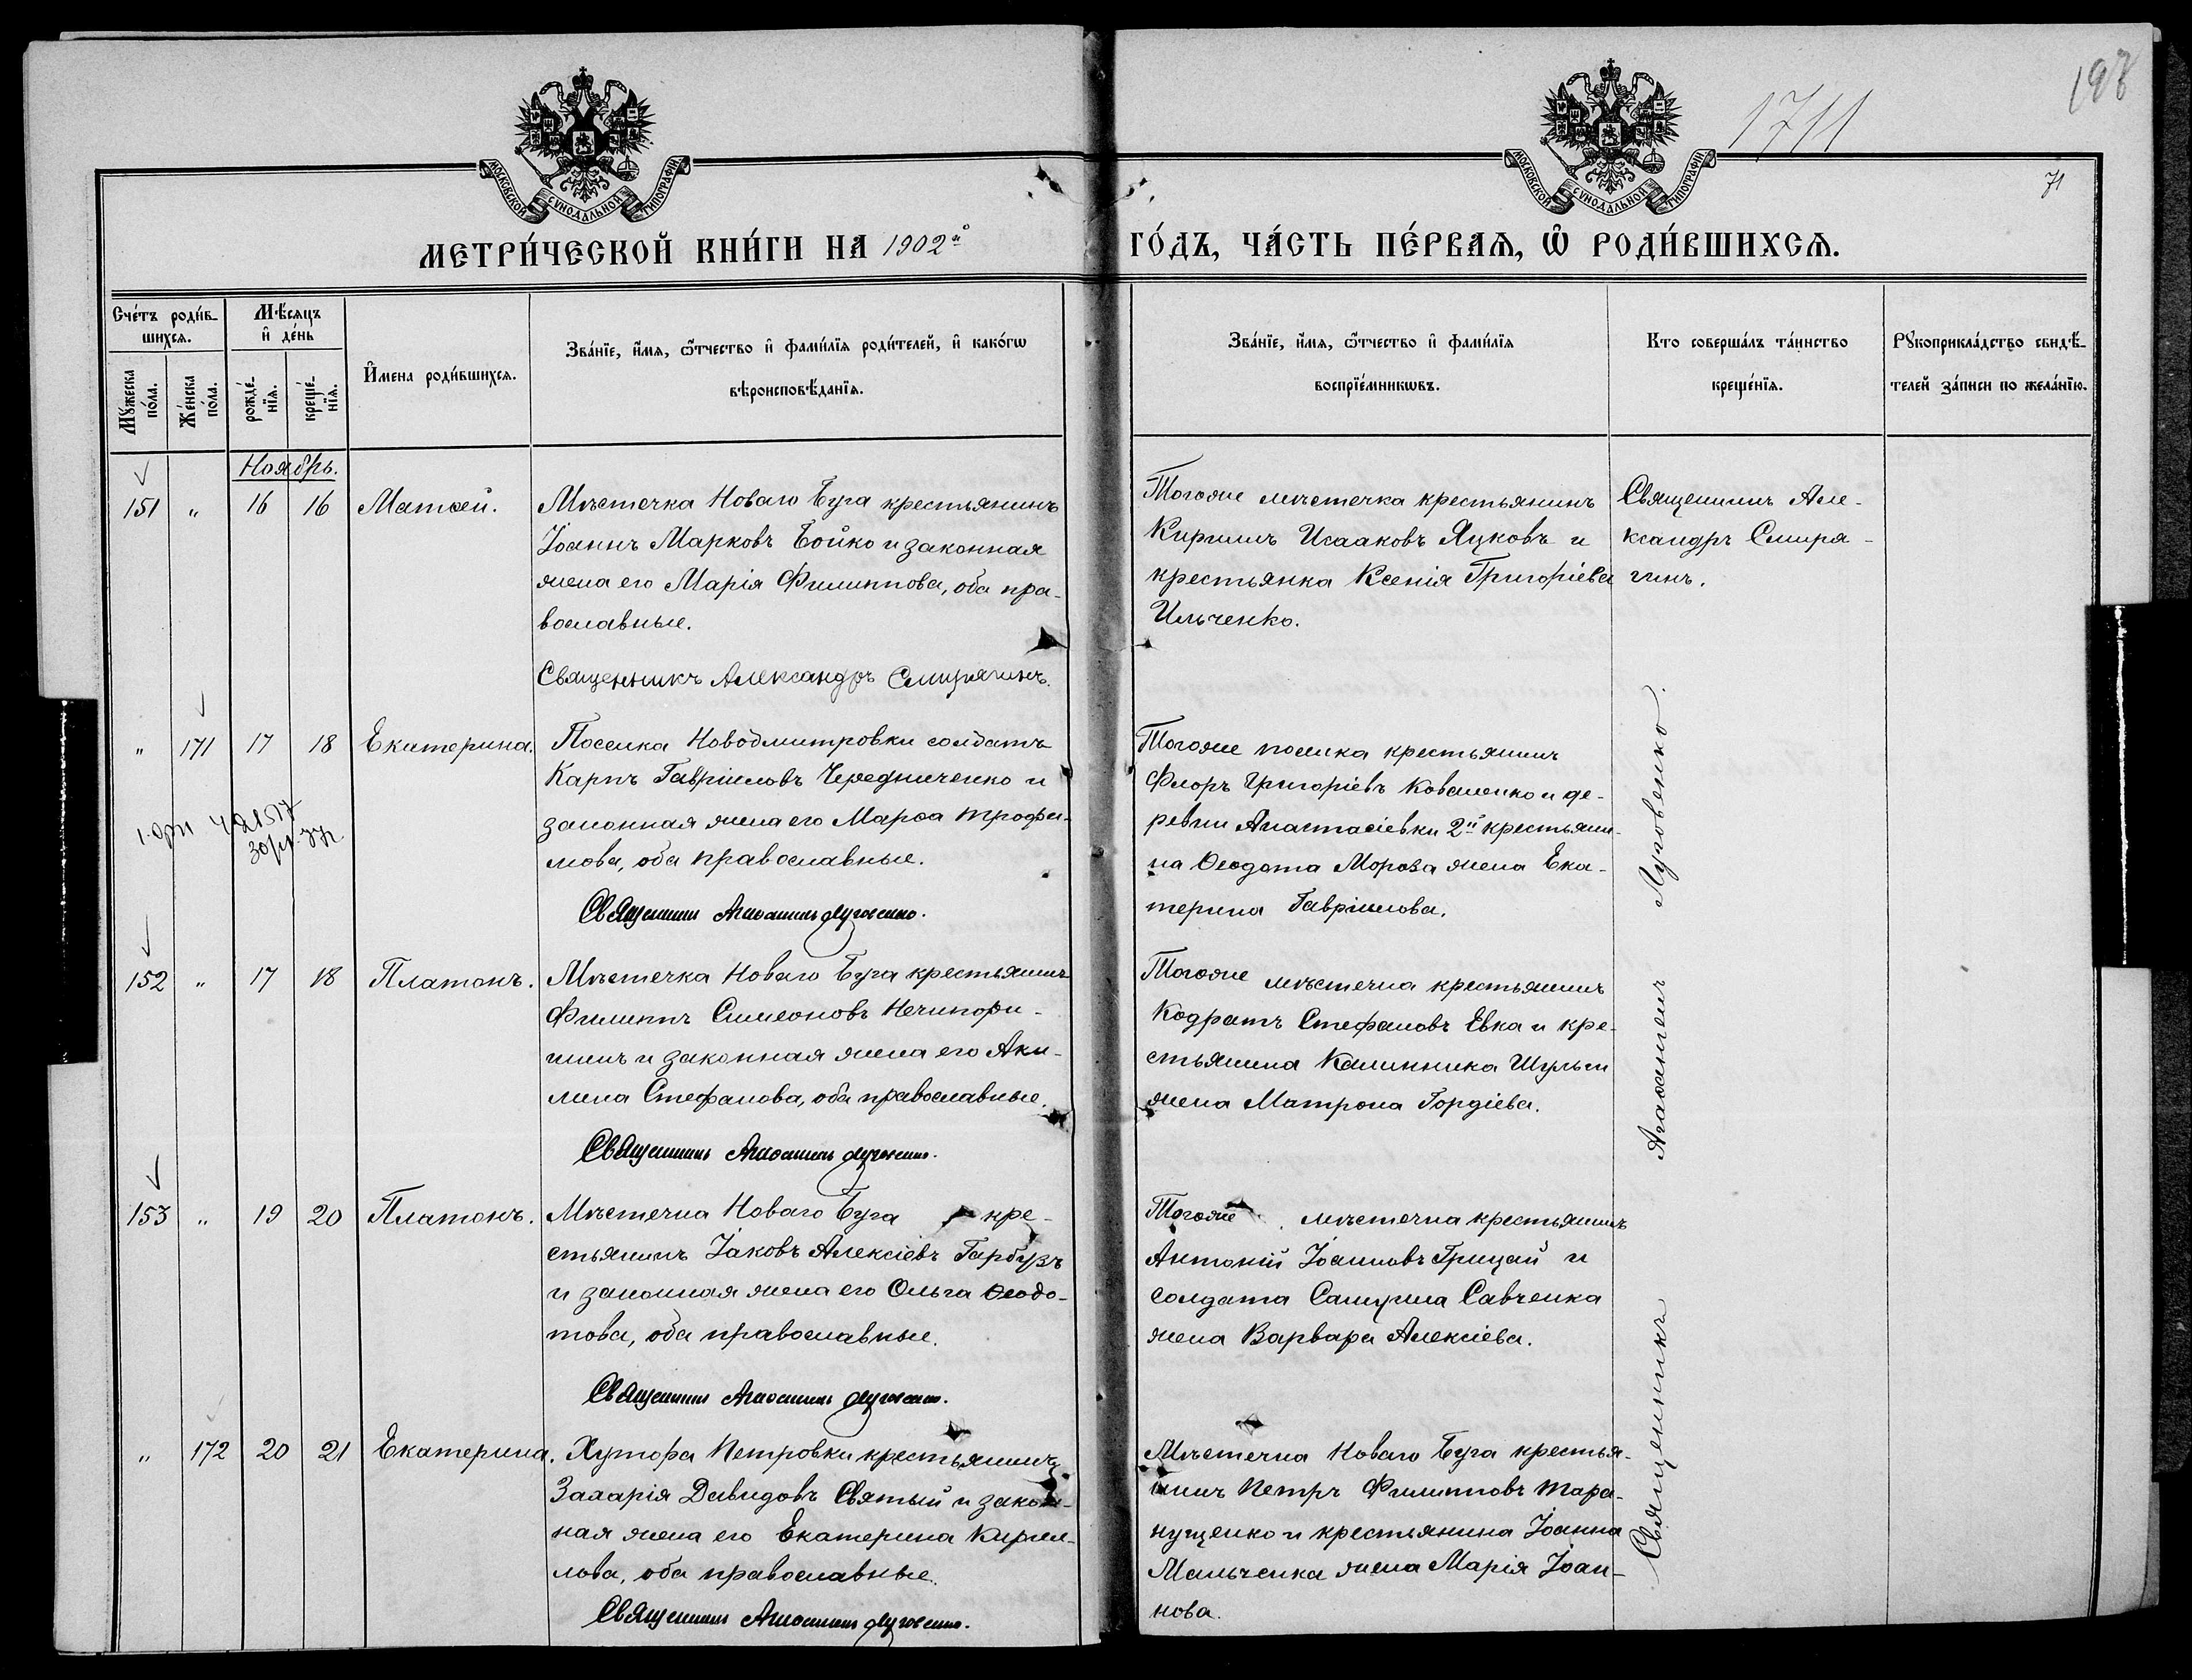 1711
198
71
МОСКОВСКОЙ СУНОДАЛЬНОЙ ТИПОГРАФІИ
МОСКОВСКОЙ СУНОДАЛЬНОЙ ТИПОГРАФІИ
МЕТРИ́ЧЕСКОЙ КНИ́ГИ НА 1902й ГО́ДЪ, ЧА́СТЬ ПЕ́РВАѦ, Ѡ҆ РОДИ́ВШИХСѦ.
Сче́тъ роди́в-
шихсѧ.
Мꙋжеска по́ла.
Же́нска по́ла.
Мѣ́сѧцъ
и҆ де́нь
рожде́-
нїѧ.
креще́-
нїѧ.
И҆мена роди́вшихсѧ.
Зва́нїе, и҆́мѧ, ѻ҆́тчество и҆ фами́лїѧ роди́телей, и҆ како́гѡ
вѣроисповѣ́данїѧ.
Зва́нїе, и҆́мѧ, ѻ҆́тчество и҆ фами́лїѧ
воспрїе́мникѡвъ.
Кто соверша́лъ та́инство
креще́нїѧ.
Рꙋкоприкла́дство свидѣ́-
телей за́писи по жела́нїю.
Ноябрь.
151 " 16 16 Матѳей.
Мѣстечка Новаго Буга крестьянинъ
Іоаннъ Марковъ Бойко и законная
жена его Марія Филиппова, оба пра-
вославные.
Священникъ Александръ Смирягинъ.
Тогоже мѣстечка крестьянинъ
Кириллъ Исааковъ Яцковъ и
крестьянка Ксенія Григоріева
Ильченко.
Священникъ Але-
ксандръ Смиря-
гинъ.
" 171 17 18 Екатерина.
Поселка Новодмитровки солдатъ
Карпъ Гавріиловъ Чередниченко и
законная жена его Марѳа Трофи-
мова, оба православные.
Священникъ Агаѳангелъ Луговенко.
Тогоже поселка крестьянинъ
Флоръ Григоріевъ Коваленко и де-
ревни Анастасіевки 2й крестьяни-
на Ѳеодота Мороза жена Ека-
терина Гавріилова.
152 " 17 18 Платонъ.
Мѣстечка Новаго Буга крестьянинъ
Филиппъ Симеоновъ Нечипори-
шинъ и законная жена его Аки-
лина Стефанова, оба православные.
Священникъ Агаѳангелъ Луговенко.
Тогоже мѣстечка крестьянинъ
Кодратъ Стефановъ Евка и кре-
стьянина Каллиника Шульги
жена Матрона Гордіева.
153 " 19 20 Платонъ.
Мѣстечка Новаго Буга кре-
стьянинъ Іаковъ Алексіевъ Гарбузъ
и законная жена его Ольга Ѳеодо-
това, оба православные.
Священникъ Агаѳангелъ Луговенко.
Тогоже мѣстечка крестьянинъ
Антоній Іоанновъ Грицай и
солдата Самуила Савченка
жена Варвара Алексіева.
" 172 20 21 Екатерина.
Хутора Петровки крестьянинъ
Захарія Давидовъ Святый и закон-
ная жена его Екатерина Кирил-
лова, оба православные.
Священникъ Агаѳангелъ Луговенко.
Мѣстечка Новаго Буга крестья-
нинъ Петръ Филипповъ Тара-
нущенко и крестьянина Іоанна
Мальченка жена Марія Іоан-
нова.
Священникъ Агаѳангелъ Луговенко.